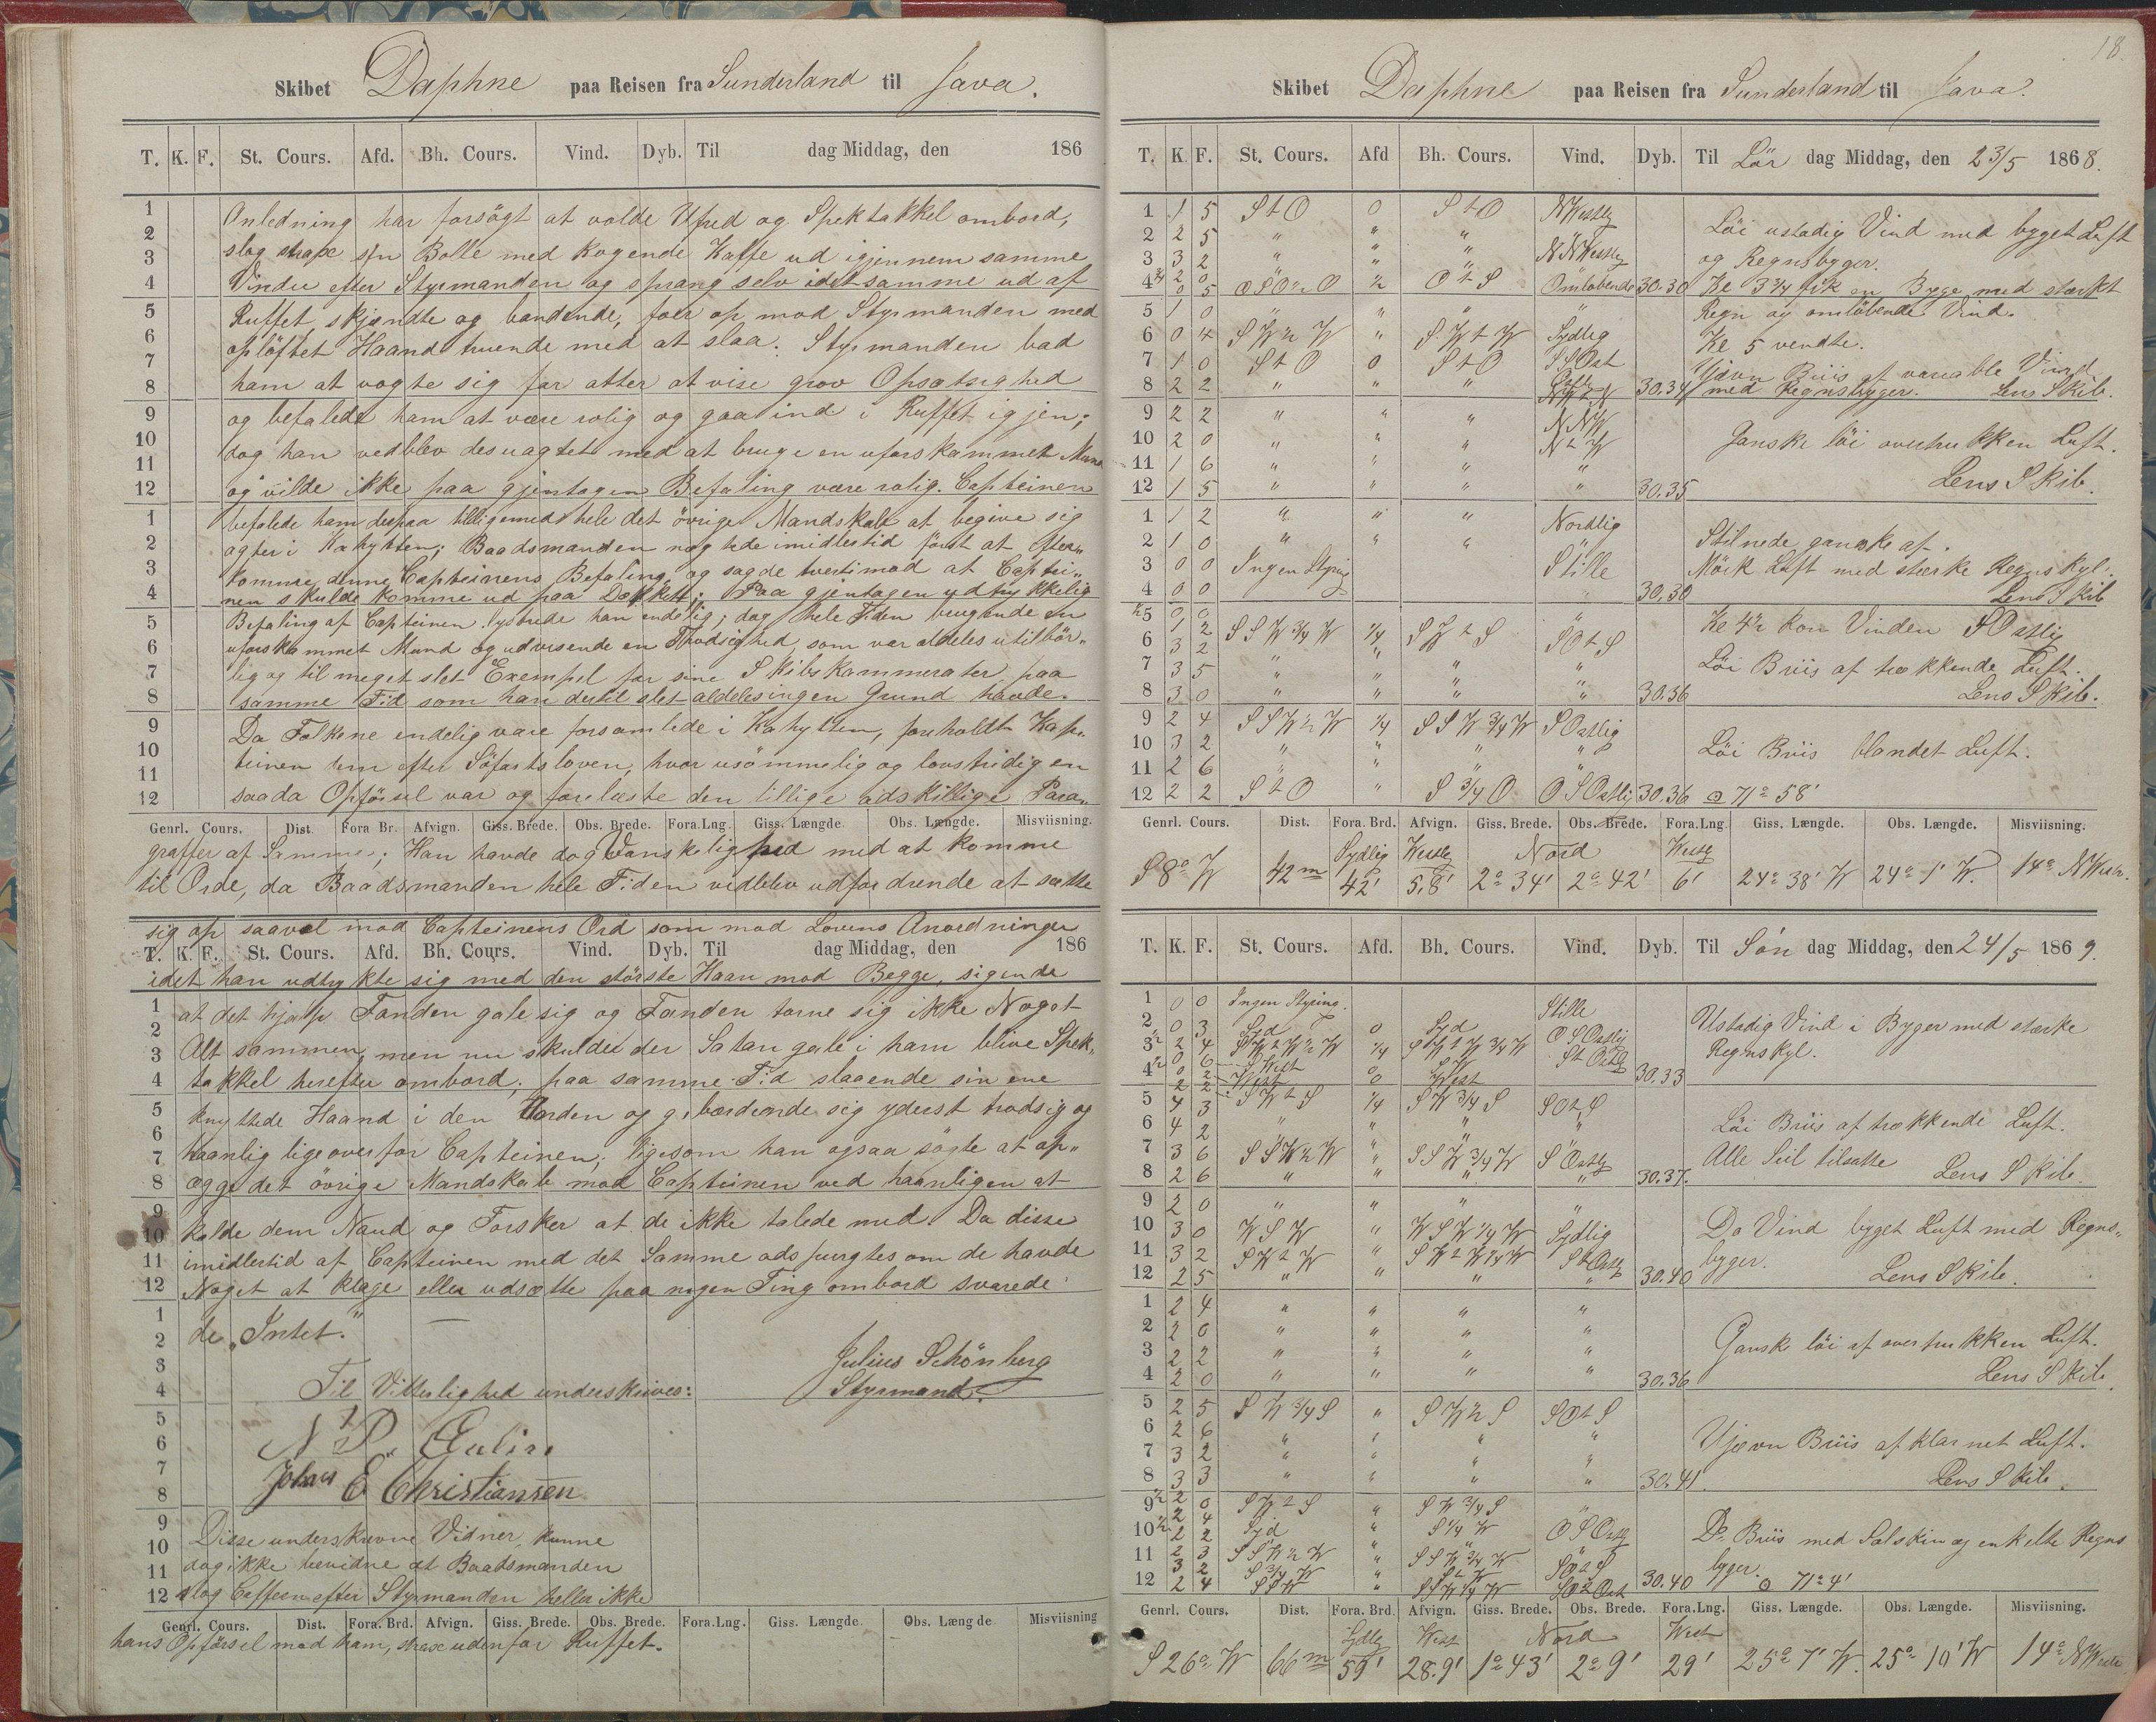 Skibet Daphne paa Reisen fra Sunderland til Java.
T. K. F. St. Cours. Afd. Bh. Cours. Vind. Dyb. Til dag Middag, den 186
1 Anledning har forsögt at volde Ufred og Spektakkel ombord,
2 slog strax sin Bolle med kogende Kaffe ud igjennem samme
3 Vindu efter Styrmanden og sprang selv idet samme ud af
4 Ruffet, skjændte og bandende, foer op mod Styrmanden med
5 oplöftet Haand truende med at slaa. Styrmanden bad
6 ham at vogte sig for atter at vise grov Opsatsighed
7 og befalede ham at være rolig og gaa ind i Ruffet igjen;
8 dog han vedblev desuagtet med at bruge en uforskammet Mund
9 og vilde ikke paa gjentagen Befaling være rolig. Capteinen
10 befalede ham derpaa tilligemed hele det övrige Mandskab at begive sig
11 agter i Kahytten; Baadsmanden nægtede imidlertid först at efter„
12 komme denne Capteinens Befaling og sagde tvertimod at Captei„
1 nen skulde komme ud paa Dækket; Paa gjentagen udtrykkelig
2 Befaling af Capteinen lystrede han endelig; dog hele Tiden brugende en
3 uforskammet Mund og udvisende en Trodsighed, som var aldeles utilbör„
4 lig og til meget slet Exempel for sine Skibskammerater, paa
5 samme Tid som han dertil slet aldeles ingen Grund havde.
6 Da Folkene endelig vare forsamlede i Kahytten, foreholdt Kap„
7 teinen dem efter Söfartsloven, hvor usömmelig og lovstridig en
8 saada Opförsel var og foreleste den tillige adskillige Para„
9
10
11
12
Genrl. Cours. Dist. Fora Br. Afvign. Giss. Brede. Obs. Brede. Fora.Lng. Giss. Længde. Obs. Længde. Misviisning.
graffer af Samme; Han havde dog Vanskelighed med at komme
til Orde, da Baadsmanden hele Tiden vedblev udfordrende at sætte
sig op saavel mod Capteinens Ord som mod Lovens Anordninger
T. K. F. St. Cours. Afd. Bh. Cours. Vind. Dyb. Til dag Middag, den 186
idet han udtrykte sig med den störste Haan mod Begge, sigende
1 at det hjalp Fanden gale sig og Fanden tarne sig ikke Noget
2 Alt sammen, men nu skulde der Satan gale i ham blive Spek„
3 takkel herefter ombord; paa samme Tid slaaende sin ene
4 knyttede Haand i den Anden og gebærdende sig yderst trodsig og
5 haanlig ligeoverfor Capteinen; ligesom han ogsaa sögte at op„
6 ægge det övrige Mandskab mod Capteinen ved haanligen at
7 kalde dem Naud og Torsker at de ikke talede med. Da disse
8 imidlertid af Capteinen med det Samme adspurgtes om de havde
9 Noget at klage eller udsætte paa nogen Ting ombord svarede
10 de „Intet."
11
12
1
2
3 Julius Schönberg
4 Til Vitterlighed underskrives: Styrmand.
5
6
7 E Christiansen
8
9 Disse underskrevne Vidner, kunne
10 dog ikke bevidne at Baadsmanden
11 slog Caffeen efter Styrmanden heller ikke
12
Genrl. Cours. Dist. Fora. Brd. Afvign. Giss. Brede. Obs. Brede. Fora.Lng. Giss. Længde. Obs. Længde. Misviisning
hans Opförsel mod ham, strax udenfor Ruffet.
18.
Skibet Daphne paa Reisen fra Sunderland til Java.
T. K. F. St. Cours. Afd Bh. Cours. Vind. Dyb. Til Lör dag Middag, den 23/5 1868.
1 1 5 S t O 0 S t O NWestlig Löi ustadig Vind med byget Luft
2 2 5 „ „ „ og Regnsbyger.
3 3 2 „ „ „ NNWestlig
4 OSO½O ½ O t S Omlöbende 30.30 Kl 3¾ fik en Byge med stærkt
5 1 0 „ „ „ Regn og omlöbende Vind.
6 0 4 SW½W „ SWtW Sydlig Kl 5 vendte.
7 1 0 S t O 0 S t O SSOst Ujævn Briis af variable Vind
8 2 2 „ „ „ 30.34 med Regnsbyger. Lens Skib.
9 2 2 „ „ „ NNW
10 2 0 „ „ „ NtW Ganske löi overtrukken Luft.
11 1 6 „ „ „ „
12 1 5 „ „ „ „ 30.35 Lens Skib
1 1 2 „ „ „ Nordlig
2 1 0 „ „ „ „ Stilnede ganske af.
3 0 0 Ingen Styring Stille Mörk Luft med stærke Regnskyl.
4 0 0 30.30 Lens Skib
5 SSW¾W ¼ SWtS „ Kl 4½ kom Vinden SOstlig
6 3 2 „ „ SOtS
7 3 5 „ „ „ „ Löi Briis af trækkende Luft.
8 3 0 „ „ „ „ 30.36 Lens Skib.
9 2 4 SSW½W ¼ SSW¾W SOstlig
10 3 2 „ „ „ „ Löi Briis blandet Luft.
11 2 6 „ „ „ „
12 2 2 S t O „ S¾O OSOstlig 30.36 71° 58'
Genrl. Cours. Dist. Fora. Brd. Afvign. Giss. Brede. Obs. Brede. Fora.Lng Giss. Længde. Obs. Længde. Misviisning.
Sydlig Westlig Nord Westlig
S 8° W 42m 42' 5,8' 2° 34' 2° 42' 6' 24° 38' W 24° 1' W. 14° NWestl.
T. K. F. St. Cours. Afd. Bh. Cours. Vind. Dyb. Til Sön dag Middag, den 24/5 1869.
1 0 0 Ingen Styring. Stille Ustadig Vind i Byger med stærke
2 0 3 Syd 0 Syd OSOstlig Regnskyl.
3 2 4 SWtW½W ¼ SWtW¾W StOstlig
4 West 0 West 30.33
5 4 3 SWtS ¼ SW¾S SOtS
6 4 2 „ „ „ „ Löi Briis af trækkende Luft.
7 3 6 SSW½W „ SSW¾W SOstlig Alle Seil tilsatte
8 2 6 „ „ „ „ 30.37. Lens Skib.
9 2 0 „ „ „ „
10 3 0 WSW „ WSW¼W Sydlig Do Vind byget Luft med Regns„
11 3 2 SWtW „ SWtW¼W StOstlig byger.
12 2 5 „ „ „ „ 30.40 Lens Skib.
1 2 4 „ „ „ „
2 2 0 „ „ „ „ Ganske löi af overtrukken Luft.
3 2 2 „ „ „ „
4 2 0 „ „ „ „ 30.36 Lens Skib.
5 2 5 SW¾S „ SW½S SOtS
6 2 6 „ „ „ „ Ujævn Briis af klarnet Luft.
7 3 2 „ „ „ „
8 3 3 „ „ „ „ 30.41. Lens Skib.
9 SWtS „ SW¾S „
10 Syd „ S¼W OSOstlig Do Briis med Solskin og enkelte Regns
11 SSW½W „ SSW¾W SOtS byger.
12 2 4 SSW „ SSW¼W 30.40 71° 4'
Genrl. Cours. Dist. Fora. Brd. Afvign. Giss. Brede. Obs. Brede. Fora.Lng. Giss. Længde. Obs. Længde. Misviisning.
Sydlig West Nord West
S 26° W 66m 59' 28.9' 1° 43' 2° 9' 29' 25° 7' W. 25° 10' W 14° NWestl